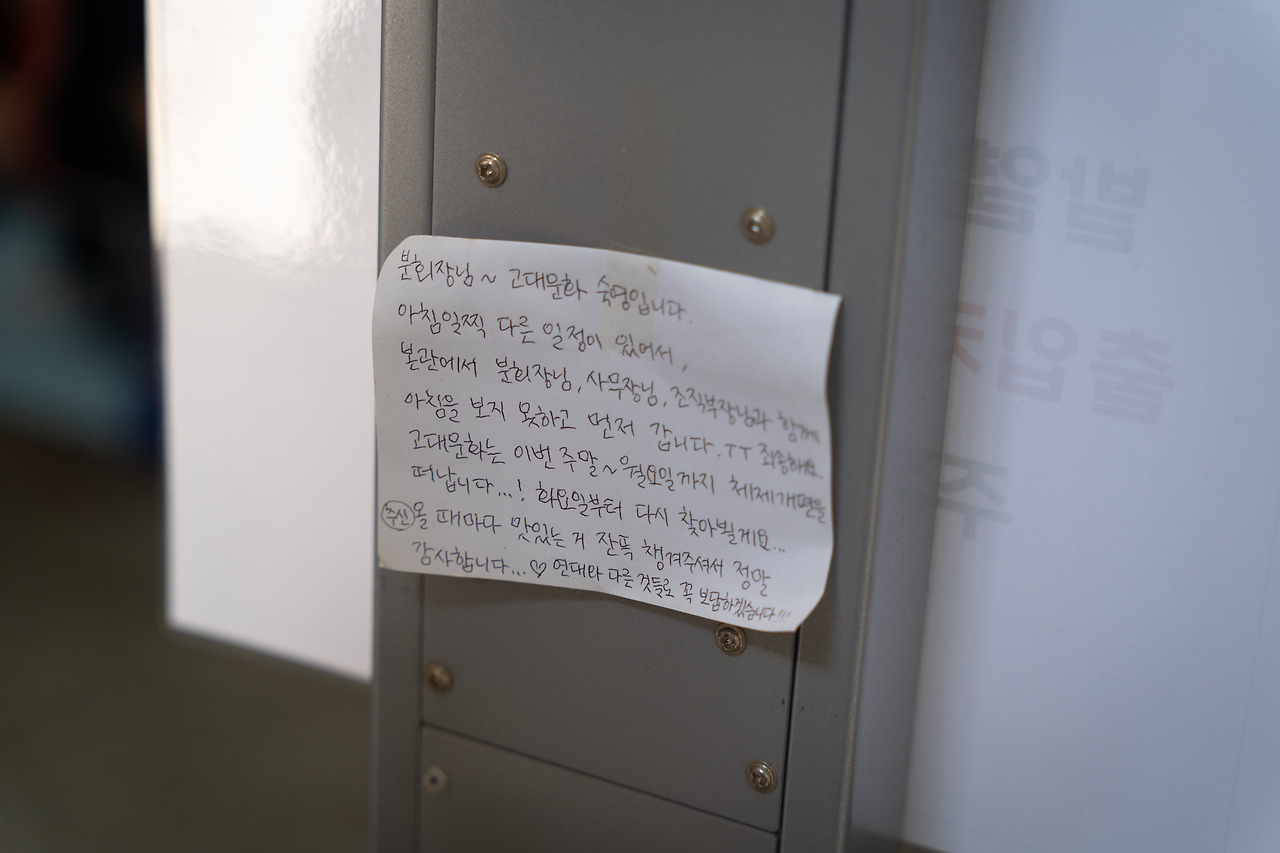 분회장님 ~ 고대문화 숙영입니다.
아침일찍 다른 일정이 있어서,
본관에서 분회장님, 사무장님, 조직부장님과 함께
아침을 보지 못하고 먼저 갑니다.ㅜㅜ 죄송해요
고대문화는 이번 주말~월요일까지 체제개편을
떠납니다...! 화요일부터 다시 찾아뵐게요...
추신 올 때마다 맛있는 거 잔뜩 챙겨주셔서 정말
감사합니다...♡ 연대와 다른 것들로 꼭 보답하겠습니다!!!
발열
출입
주